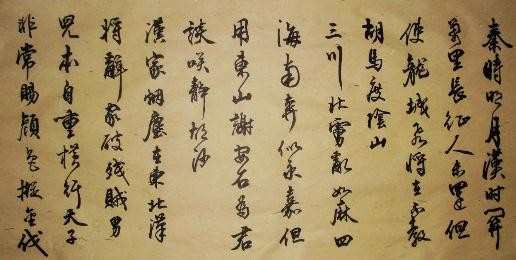 秦時明月漢時關
萬里長征人未還但
使龍城飛將在不教
胡馬度陰山
三川北虜亂如麻四
海南奔似永嘉但
用東山謝安石為君
談咲靜胡沙
漢家烟塵在東北漢
將辭家破殘賊男
兒本自重橫行天子
非常賜顏色摐金伐